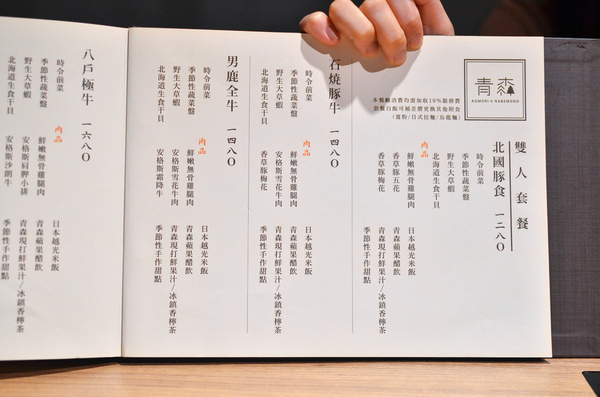 青森
AOMORI X NABEMONO
本餐廳消費均需加收10%服務費
套餐白飯可補差價更換其他附食
(寬粉/日式拉麵/烏龍麵)
雙人套餐
北國豚食 一二八〇
時令前菜
季節性蔬菜盤
野生大草蝦
北海道生食干貝
肉品
鮮嫩無骨雞腿肉
香草豚五花
香草豚梅花
日本越光米飯
青森蘋果醋飲
青森現打鮮果汁/冰鎮香檸茶
季節性手作甜點
石燒豚牛 一四八〇
時令前菜
季節性蔬菜盤
野生大草蝦
北海道生食干貝
肉品
鮮嫩無骨雞腿肉
安格斯雪花牛肉
香草豚梅花
日本越光米飯
青森蘋果醋飲
青森現打鮮果汁/冰鎮香檸茶
季節性手作甜點
男鹿全牛 一四八〇
時令前菜
季節性蔬菜盤
野生大草蝦
北海道生食干貝
肉品
鮮嫩無骨雞腿肉
安格斯雪花牛肉
安格斯霜降牛
日本越光米飯
青森蘋果醋飲
青森現打鮮果汁/冰鎮香檸茶
季節性手作甜點
八戶極牛 一六八〇
時令前菜
季節性蔬菜盤
野生大草蝦
北海道生食干貝
肉品
鮮嫩無骨雞腿肉
安格斯肩胛小排
安格斯沙朗牛
日本越光米飯
青森蘋果醋飲
青森現打鮮果汁/冰鎮香檸茶
季節性手作甜點